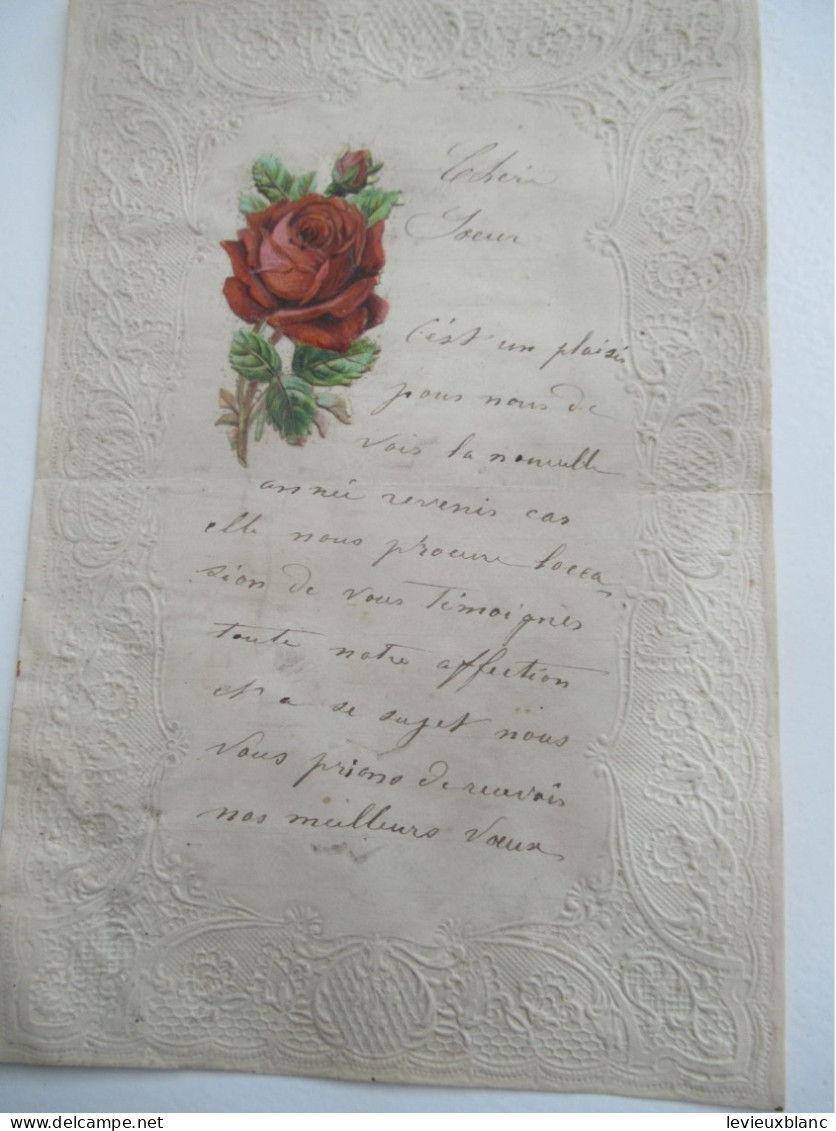 Chère
Soeur
C'est un plaisir
pour nous de
voir la nouvelle
année revenir car
elle nous procure locca
sion de vous témoigner
toute notre affection
et a se sujet nous
vous prions de recevoir
nos meilleurs vœux
delcampe.net
levieuxblanc